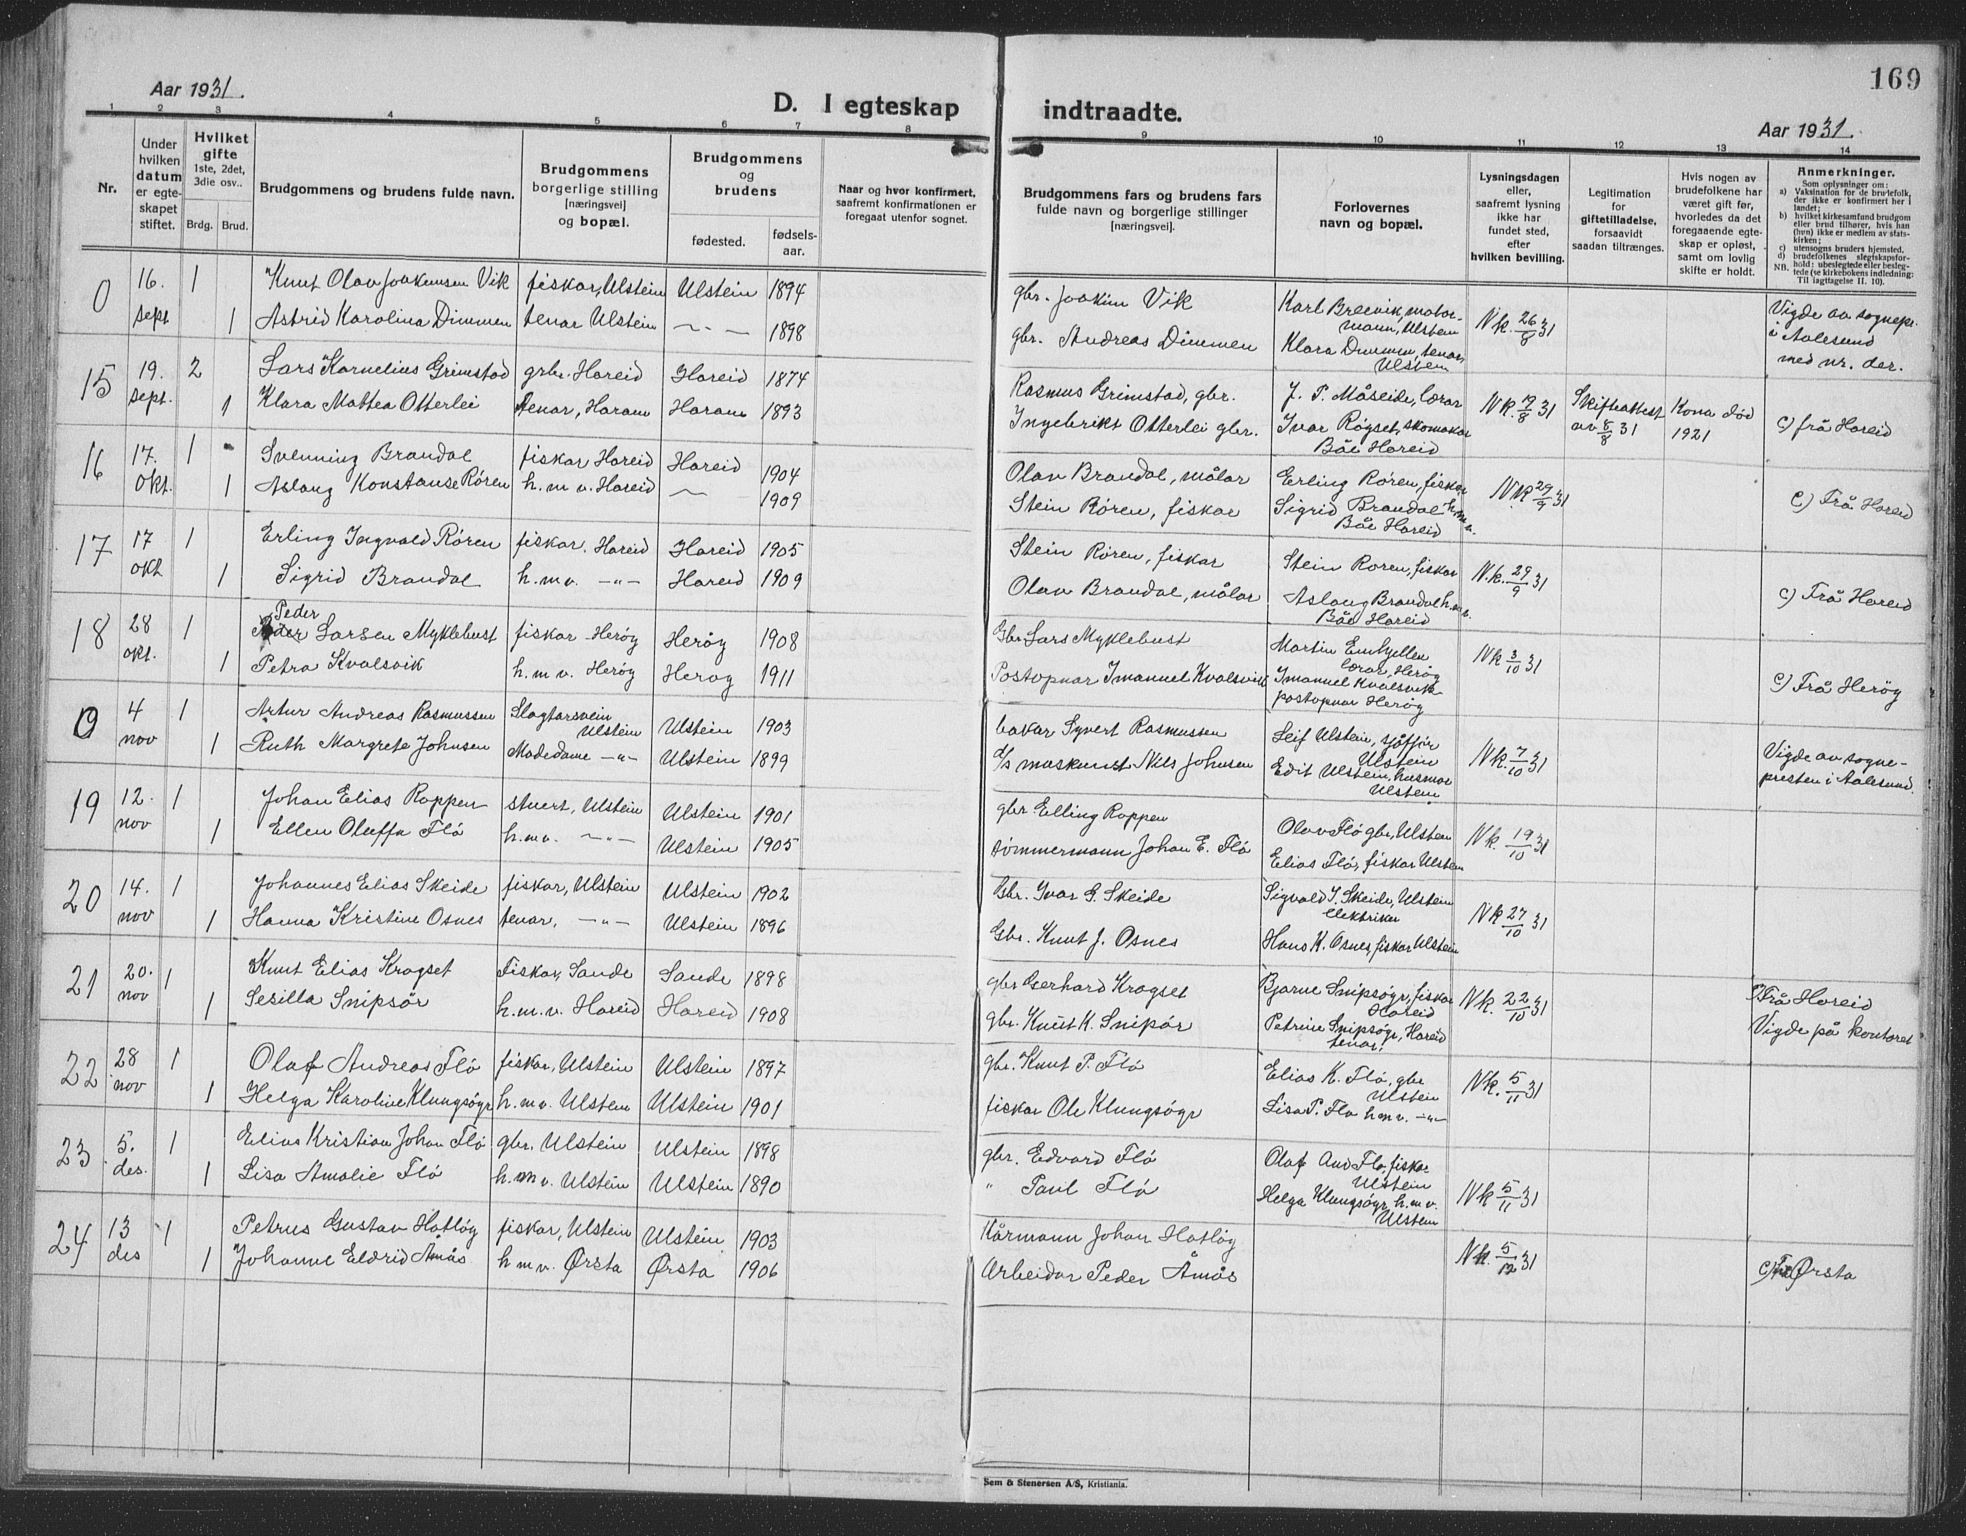 169
Aar 1931.
D. I egteskap indtraadte.
Aar 1931.
1 2 3 4 5 6 7 8 9 10 11 12 13 14
Nr.
Under hvilken datum er egteskapet stiftet.
Hvilket gifte 1ste, 2det, 3die osv..
Brdg. Brud.
Brudgommens og brudens fulde navn.
Brudgommens borgerlige stilling [næringsvei] og bopæl.
Brudgommens og brudens
fødested.
fødselsaar.
Naar og hvor konfirmert, saafremt konfirmationen er foregaat utenfor sognet.
Brudgommens fars og brudens fars fulde navn og borgerlige stillinger [næringsvei].
Forlovernes navn og bopæl.
Lysningsdagen eller, saafremt lysning ikke har fundet sted, efter hvilken bevilling.
Legitimation for giftetilladelse, forsaavidt saadan tiltrænges.
Hvis nogen av brudefolkene har været gift før, hvorledes da det foregaaende egteskap er opløst, samt om lovlig skifte er holdt.
Anmerkninger.
Som oplysninger om:
a) Vaksination for de brudefolk, der ikke er konfirmert her i landet;
b) hvilket kirkesamfund brudgom eller brud tilhører, hvis han (hun) ikke er medlem av statskirken;
c) utensogns bruders hjemsted.
d) brudefolkenes slegtskapsforhold: ubeslegtede eller beslegtede (se kirkebokens indledning: Til iagttagelse II. 10).
NB.
0 16. sept 1 Knut Olav Joakimsen Vik fiskar, Ulstein Ulstein 1894 gbr. Joakim Vik Karl Breivik, motormann, Ulstein Nk. 26/8 31 Vigde av sognepr. i Aalesund med nr. der.
1 Astrid Karolina Dimmen tenar Ulstein -"- 1898 gbr. Andreas Dimmen Klara Dimmen, tenar, Ulstein
15 19. sept. 2 Lars Kornelius Grimstad grbr. Hareid Hareid 1874 Rasmus Grimstad, gbr. J. P. Måseide, lærar Nk. 7/8 31 Skifteattest av 8/8 31 Kona død 1921 c) frå Hareid
1 Klara Mattea Otterlei tenar, Haram Haram 1893 Ingebrikt Otterlei gbr. Ivar Røgset, skomakar Båe Hareid
16 17. okt. 1 Svenning Brandal fiskar Hareid Hareid 1904 Olav Brandal, målar Erling Røren, fiskar Nk 29/9 31 c) Frå Hareid
1 Aslaug Konstanse Røren h.m.v. Hareid -"- 1909 Stein Røren, fiskar Sigrid Brandal h.m.v. Båe Hareid
17 17 okt 1 Erling Ingvald Røren fiskar. Hareid Hareid 1905 Stein Røren, fiskar Stein Røren, fiskar N.k. 29/9 31 c) Frå Hareid
1 Sigrid Brandal h.m.v. -"- Hareid 1909 Olav Brandal, målar Aslaug Brandal h.m.v. Båe Hareid
18 28 okt. 1 Peder Larsen Myklebust fiskar Herøy Herøy 1908 Gbr. Lars Myklebust Martin Emhjellen lærar, Herøy Nk 3/10 31 c) Frå Herøy
1 Petra Kvalsvik h.m.v. Herøy Herøy 1911 Postopnar Imanuel Kvalsvik Imanuel Kvalsvik postopnar Herøy
0 4 nov 1 Artur Andreas Rasmussen Slagtarsvein Ulstein Ulstein 1903 bakar Syvert Rasmussen Leif Ulstein, sjåfför Ulstein Nk. 7/10 31 Vigde av sognepresten i Aalesund.
1 Ruth Margrete Johnsen Modedame -"- Ulstein 1899 d/s maskinist Nils Johnsen Edit Ulstein, husmor Ulstein
19 12. nov 1 Johan Elias Roppen stuert, Ulstein Ulstein 1901 gbr Elling Roppen Olav Flö gbr, Ulstein Nk. 19/10 31
1 Ellen Oluffa Flö h.m.v. -"- Ulstein 1905 tömmermann Johan E. Flö Elias Flö, fiskar Ulstein
20 14. nov 1 Johannes Elias Skeide fiskar, Ulstein Ulstein 1902 Gbr. Ivar G. Skeide Sigvald I. Skeide, Ulstein elektriker Nk 27/10 31
1 Hanna Kristine Osnes tenar. -"- Ulstein 1896 Gbr. Knut J. Osnes Hans K. Osnes, fiskar Ulstein
21 20. nov 1 Knut Elias Krogset Fiskar, Sande Sande 1898 gbr Gerhard Krogset Bjarne Snipsøyr, fiskar Hareid Nk. 22/10 31 c) Frå Hareid
1 Sesilla Snipsör h.m.v. Hareid Hareid 1908 gbr. Knut K. Snipör Petrine Snipsøyr, Hareid tenar. Vigde på kontoret
22 28 nov 1 Olaf Andreas Flö fiskar, Ulstein Ulstein 1897 gbr. Knut P. Flö Elias K. Flö, gbr Ulstein Nk. 5/11 31
1 Helga Karoline Klungsöyr h.m.v. Ulstein Ulstein 1901 fiskar Ole Klungsöyr Lisa P. Flo h.m.v. -"-
23 5. des. 1 Elias Kristian Johan Flö gbr. Ulstein Ulstein 1898 gbr. Edvard Flö Olaf And Flo, fiskar Ulstein Nk 5/11 31
1 Lisa Amalie Flö h.m.v. Ulstein Ulstein 1890 " Paul Flö Helga Klungsöyr, h.m.v. Ulstein
24 13 des 1 Petrus Gustav Hatløy fiskar, Ulstein Ulstein 1903 Kårmann Johan Hatløy Nk. 5/12 31
1 Johanne Eldrid Åmås h.m.v. Ørsta Ørsta 1906 Arbeidar Peder Åmås c) Frå Ørsta
Sem & Stenersen A/S, Kristiania.